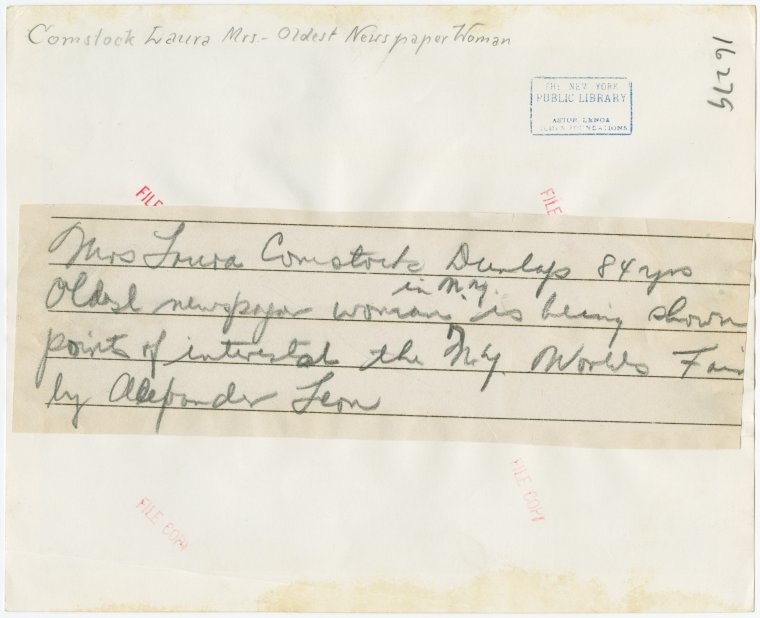 Comstock Laura Mrs - Oldest Newspaper Woman
16279
THE NEW YORK
PUBLIC LIBRARY
ASTOR LENOX
TILDEN FOUNDATIONS
FILE
FILE
Mrs Laura Comstock Dunlap 84 yrs
Oldest newspaper woman in N.Y. is being shown
points of interest at the N.Y. Worlds Fair
by Alexander Leon
FILE COPY
FILE COPY